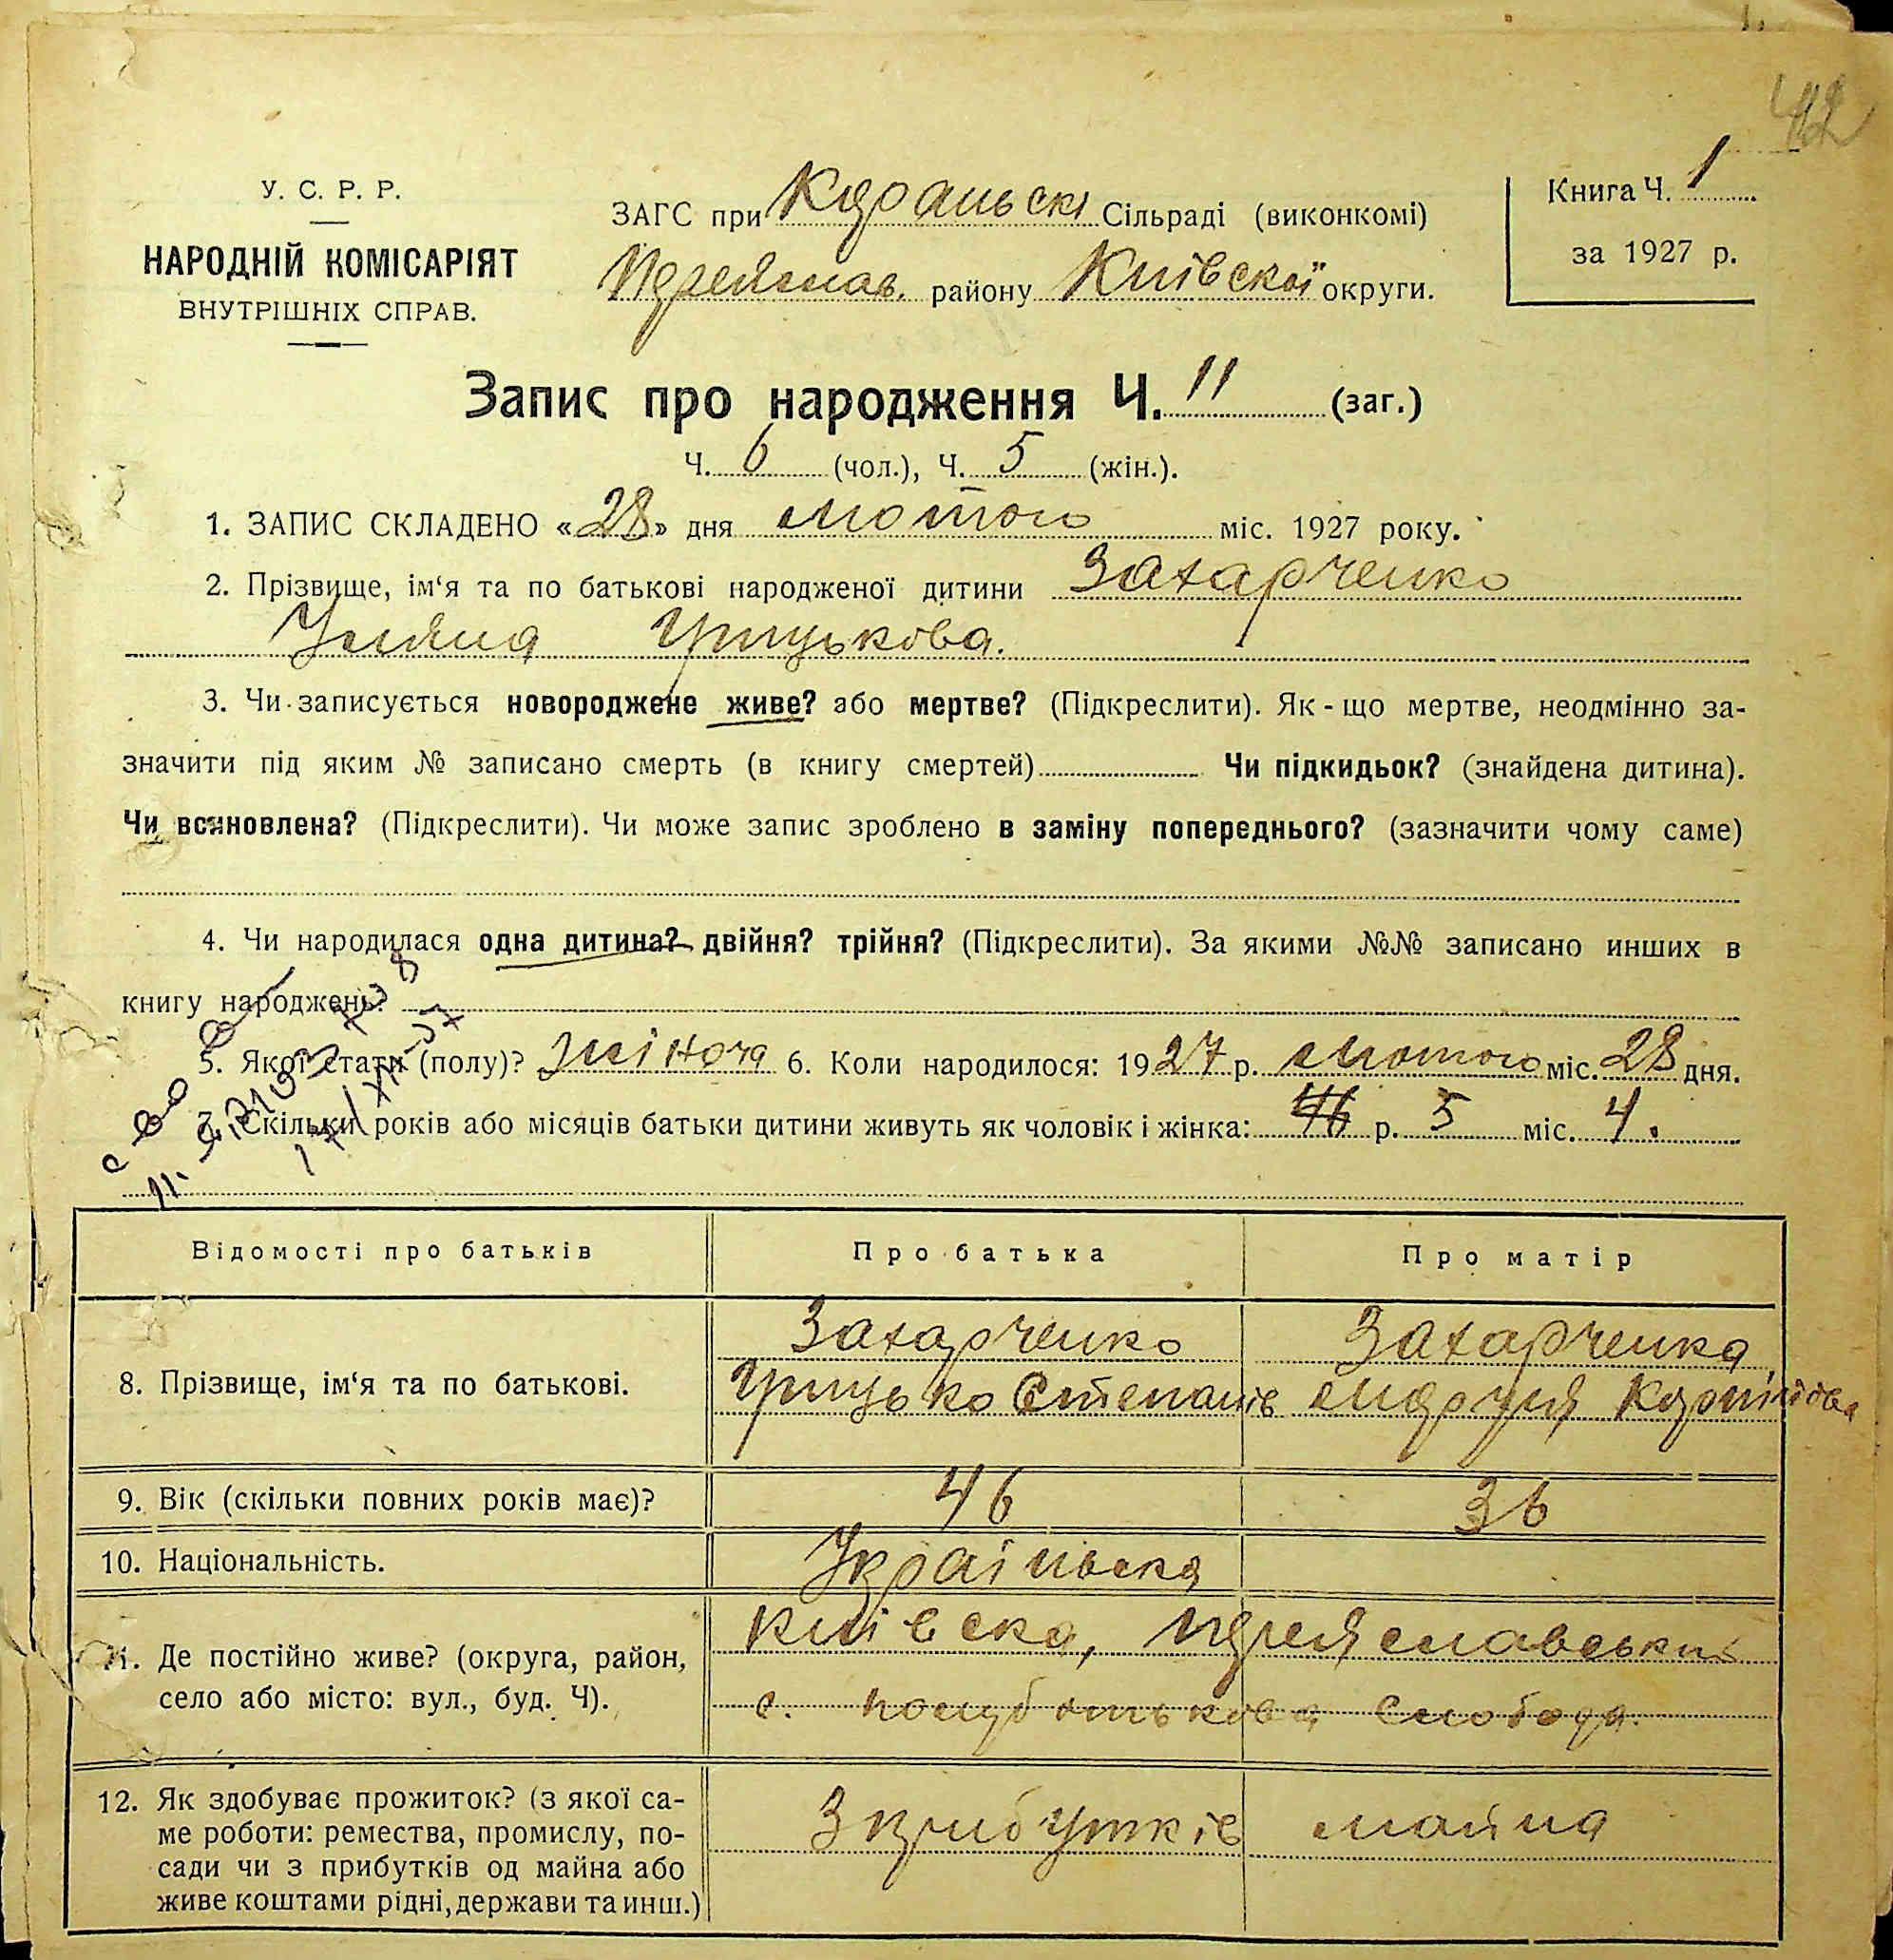 42
У. С. Р. Р.
НАРОДНІЙ КОМІСАРІЯТ
ВНУТРІШНІХ СПРАВ.
ЗАГС при Караньскі Сільраді (виконкомі)
Переяслав. району Київскої округи.
Книга Ч. 1
за 1927 р.
Запис про народження Ч. 11 (заг.)
Ч. 6 (чол.), Ч. 5 (жін.).
1. ЗАПИС СКЛАДЕНО «28» дня лютого міс. 1927 року.
2. Прізвище, ім‘я та по батькові народженої дитини Захарченко
Уляна Грицькова.
3. Чи записується новороджене живе? або мертве? (Підкреслити). Як-що мертве, неодмінно за-
значити під яким № записано смерть (в книгу смертей) Чи підкидьок? (знайдена дитина).
Чи всиновлена? (Підкреслити). Чи може запис зроблено в заміну попереднього? (зазначити чому саме)
4. Чи народилася одна дитина? двійня? трійня? (Підкреслити). За якими №№ записано инших в
книгу народжень?
5. Якої стати (полу)? Жіноча 6. Коли народилося: 1927 р. лютого міс. 28 дня.
7. Скільки років або місяців батьки дитини живуть як чоловік і жінка: р. 5 міс. 4.
Відомості про батьків
Про батька
Про матір
8. Прізвище, ім‘я та по батькові.
Захарченко
Грицько Степанів
Захарченка
9. Вік (скільки повних років має)?
46
36
10. Національність.
Українська
11. Де постійно живе? (округа, район,
село або місто: вул., буд. Ч).
Київска, Переяславський
с. Полуботькова Слобода.
12. Як здобуває прожиток? (з якої са-
ме роботи: ремества, промислу, по-
сади чи з прибутків од майна або
живе коштами рідні, держави та инш.)
З прибутків майна